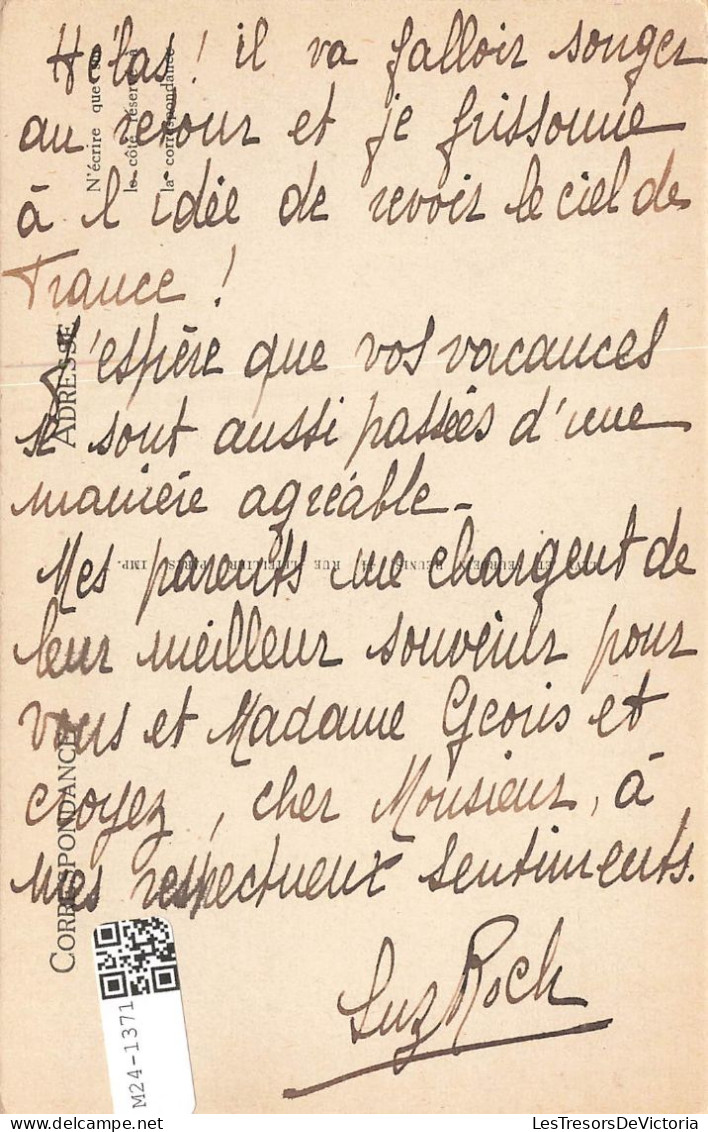 Hélas ! il va falloir songer
au retour et je frissonne
à l'idée de revoir le ciel de
France !
J'espère que vos vacances
se sont aussi passées d'une
manière agréable -
Mes parents me chargent de
leur meilleur souvenir pour
vous et Madame Georis et
croyez, cher Monsieur, à
mes respectueux sentiments.
Suz Roch
CORRESPONDANCE
ADRESSE
N'écrire que
le côté réservé
la correspondance
LÉVY ET NEURDEIN RÉUNIS, 44, RUE LETELLIER, PARIS IMP.
M24-1371
LesTresorsDeVictoria